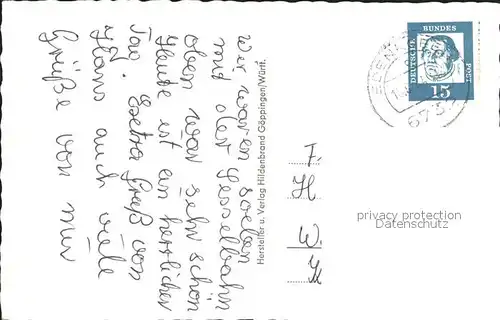 Wir waren soeben
mit der Sesselbahn
oben war sehr schön
Heute ist ein herrlicher
Tag. Extra Gruß von
Hans auch viele
Grüße von mir
Hersteller u. Verlag Hildenbrand Göppingen/Württ.
DEUTSCHE BUNDES POST
15
F.
H
W.
privacy protection
Datenschutz